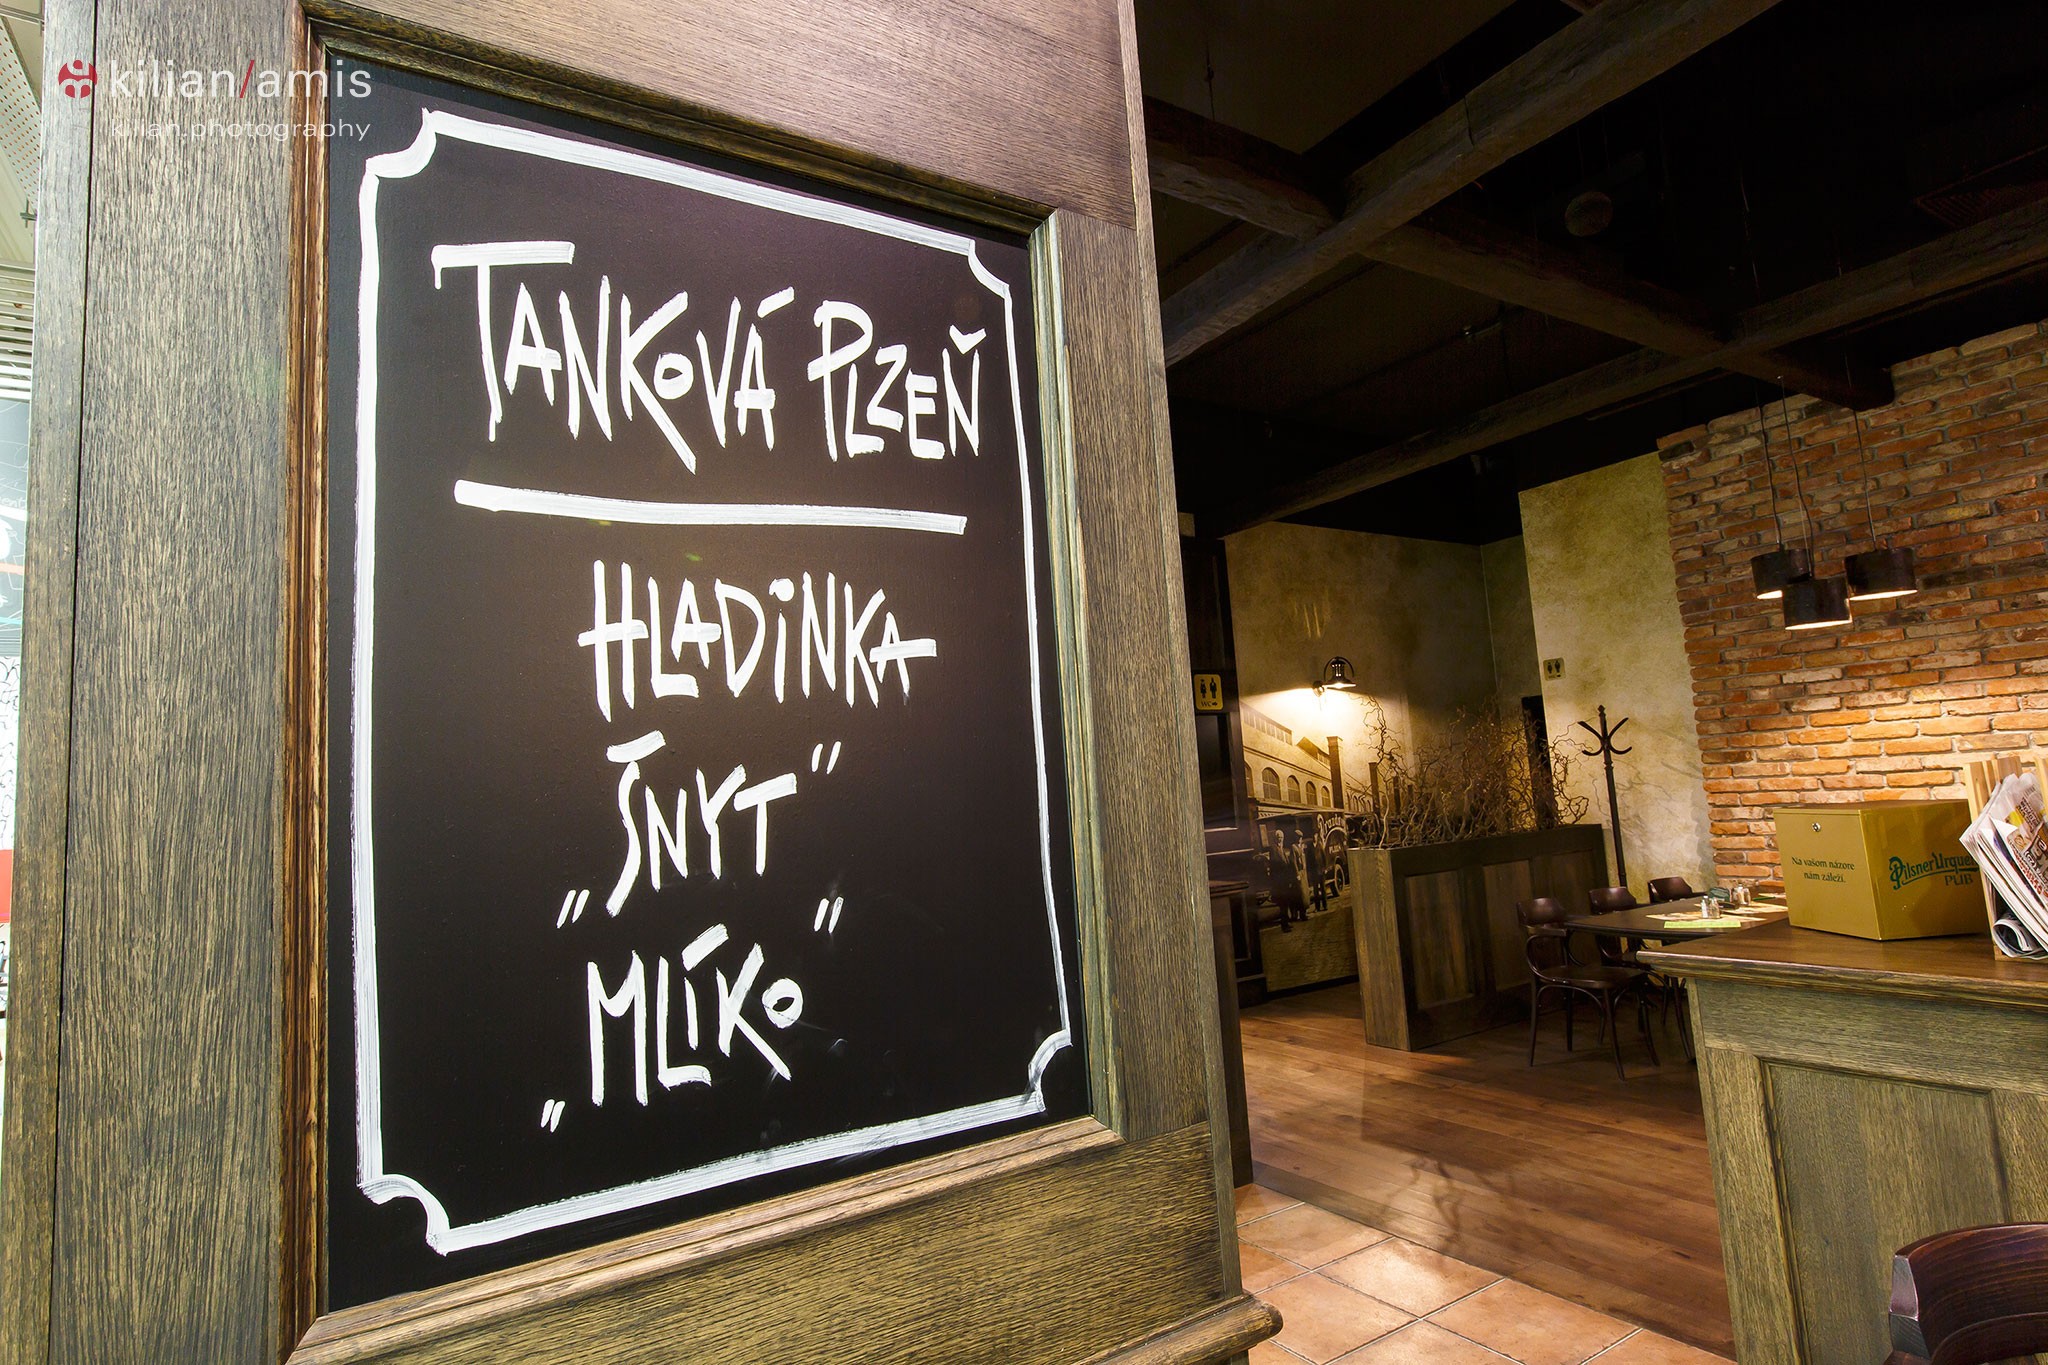 kilian/amis
kilian.photography
TANKOVÁ PLZEŇ
HLADINKA
„ŠNYT"
„MLÍKO"
WC
Na vašom názore
nám záleží.
Pilsner Urquell
PUB